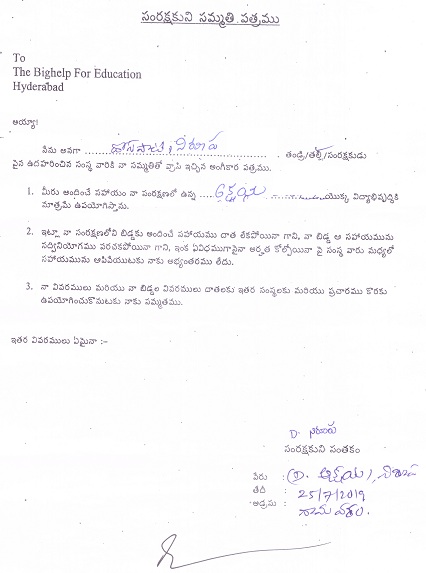 సంరక్షకుని సమ్మతి పత్రము
To
The Bighelp For Education
Hyderabad
అయ్యా!
నేను అనగా ........ నిరూప ........ తండ్రి/తల్లి/సంరక్షకుడు
పైన ఉదహరించిన సంస్థ వారికి నా సమ్మతితో వ్రాసి ఇచ్చిన అంగీకార పత్రము.
1. మీరు అందించే సహాయం నా సంరక్షణలో ఉన్న ........ యొక్క విద్యాభివృద్ధికి
మాత్రమే ఉపయోగిస్తాను.
2. ఇట్లా నా సంరక్షణలోని బిడ్డకు అందించే సహాయము దాత లేకపోయినా గాని, నా బిడ్డ ఆ సహాయమును
సద్వినియోగము పరచకపోయినా గాని, ఇంక ఏవిధముగానైనా అర్హత కోల్పోయినా పై సంస్థ వారు మధ్యలో
సహాయమును ఆపివేయుటకు నాకు అభ్యంతరము లేదు.
3. నా వివరములు మరియు నా బిడ్డల వివరములు దాతలకు ఇతర సంస్థలకు మరియు ప్రచారము కొరకు
ఉపయోగించుకొనుటకు నాకు సమ్మతము.
ఇతర వివరములు ఏమైనా :-
D. నిరూప
సంరక్షకుని సంతకం
పేరు : (D. ), నిరూప
తేది : 25/7/2019
అడ్రసు :